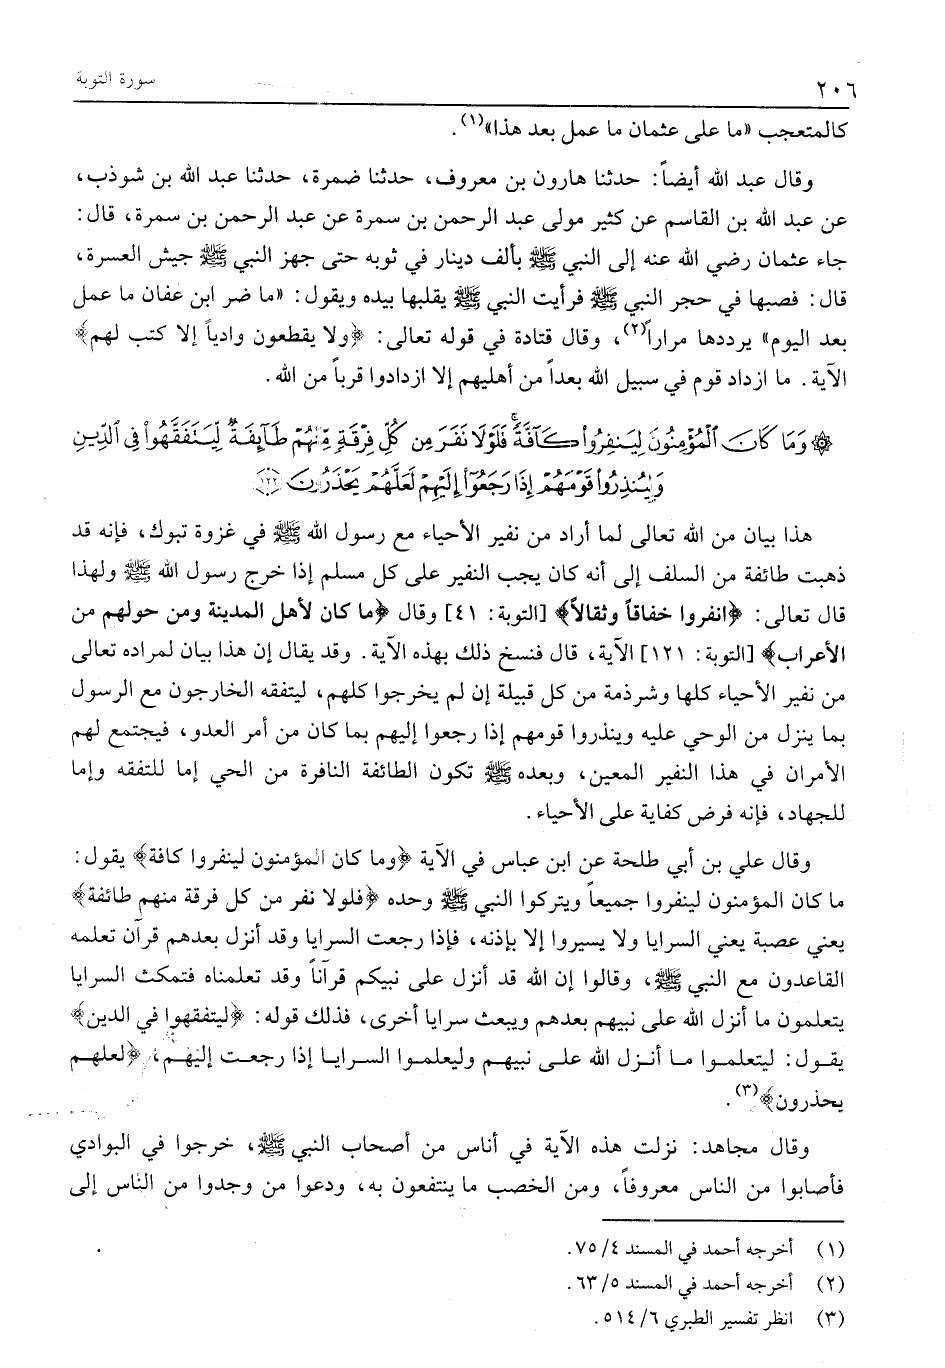 ٢٠٦ سورة التوبة
كالمتعجب «ما على عثمان ما عمل بعد هذا»(١).
وقال عبد الله أيضاً: حدثنا هارون بن معروف، حدثنا ضمرة، حدثنا عبد الله بن شوذب،
عن عبد الله بن القاسم عن كثير مولى عبد الرحمن بن سمرة عن عبد الرحمن بن سمرة، قال:
جاء عثمان رضي الله عنه إلى النبي ﷺ بألف دينار في ثوبه حتى جهز النبي ﷺ جيش العسرة،
قال: فصبها في حجر النبي ﷺ فرأيت النبي ﷺ يقلبها بيده ويقول: «ما ضر ابن عفان ما عمل
بعد اليوم» يرددها مراراً(٢)، وقال قتادة في قوله تعالى: ﴿ولا يقطعون وادياً إلا كتب لهم﴾
الآية. ما ازداد قوم في سبيل الله بعداً من أهليهم إلا ازدادوا قرباً من الله.
۞ وَمَا كَانَ ٱلْمُؤْمِنُونَ لِيَنفِرُواْ كَآفَّةً ۚ فَلَوْلَا نَفَرَ مِن كُلِّ فِرْقَةٍ مِّنْهُمْ طَآئِفَةٌ لِّيَتَفَقَّهُواْ فِى ٱلدِّينِ
وَلِيُنذِرُواْ قَوْمَهُمْ إِذَا رَجَعُوٓاْ إِلَيْهِمْ لَعَلَّهُمْ يَحْذَرُونَ ﴿١٢٢﴾
هذا بيان من الله تعالى لما أراد من نفير الأحياء مع رسول الله ﷺ في غزوة تبوك، فإنه قد
ذهبت طائفة من السلف إلى أنه كان يجب النفير على كل مسلم إذا خرج رسول الله ﷺ ولهذا
قال تعالى: ﴿انفروا خفاقاً وثقالاً﴾ [التوبة: ٤١] وقال ﴿ما كان لأهل المدينة ومن حولهم من
الأعراب﴾ [التوبة: ١٢١] الآية، قال فنسخ ذلك بهذه الآية. وقد يقال إن هذا بيان لمراده تعالى
من نفير الأحياء كلها وشرذمة من كل قبيلة إن لم يخرجوا كلهم، ليتفقه الخارجون مع الرسول
بما ينزل من الوحي عليه وينذروا قومهم إذا رجعوا إليهم بما كان من أمر العدو، فيجتمع لهم
الأمران في هذا النفير المعين، وبعده ﷺ تكون الطائفة النافرة من الحي إما للتفقه وإما
للجهاد، فإنه فرض كفاية على الأحياء.
وقال علي بن أبي طلحة عن ابن عباس في الآية ﴿وما كان المؤمنون لينفروا كافة﴾ يقول:
ما كان المؤمنون لينفروا جميعاً ويتركوا النبي ﷺ وحده ﴿فلولا نفر من كل فرقة منهم طائفة﴾
يعني عصبة يعني السرايا ولا يسيروا إلا بإذنه، فإذا رجعت السرايا وقد أنزل بعدهم قرآن تعلمه
القاعدون مع النبي ﷺ، وقالوا إن الله قد أنزل على نبيكم قرآناً وقد تعلمناه فتمكث السرايا
يتعلمون ما أنزل الله على نبيهم بعدهم ويبعث سرايا أخرى، فذلك قوله: ﴿ليتفقهوا في الدين﴾
يقول: ليتعلموا ما أنزل الله على نبيهم وليعلموا السرايا إذا رجعت إليهم، ﴿لعلهم
يحذرون﴾(٣).
وقال مجاهد: نزلت هذه الآية في أناس من أصحاب النبي ﷺ، خرجوا في البوادي
فأصابوا من الناس معروفاً، ومن الخصب ما ينتفعون به، ودعوا من وجدوا من الناس إلى
(١) أخرجه أحمد في المسند ٤/ ٧٥.
(٢) أخرجه أحمد في المسند ٥/ ٦٣.
(٣) انظر تفسير الطبري ٦/ ٥١٤.